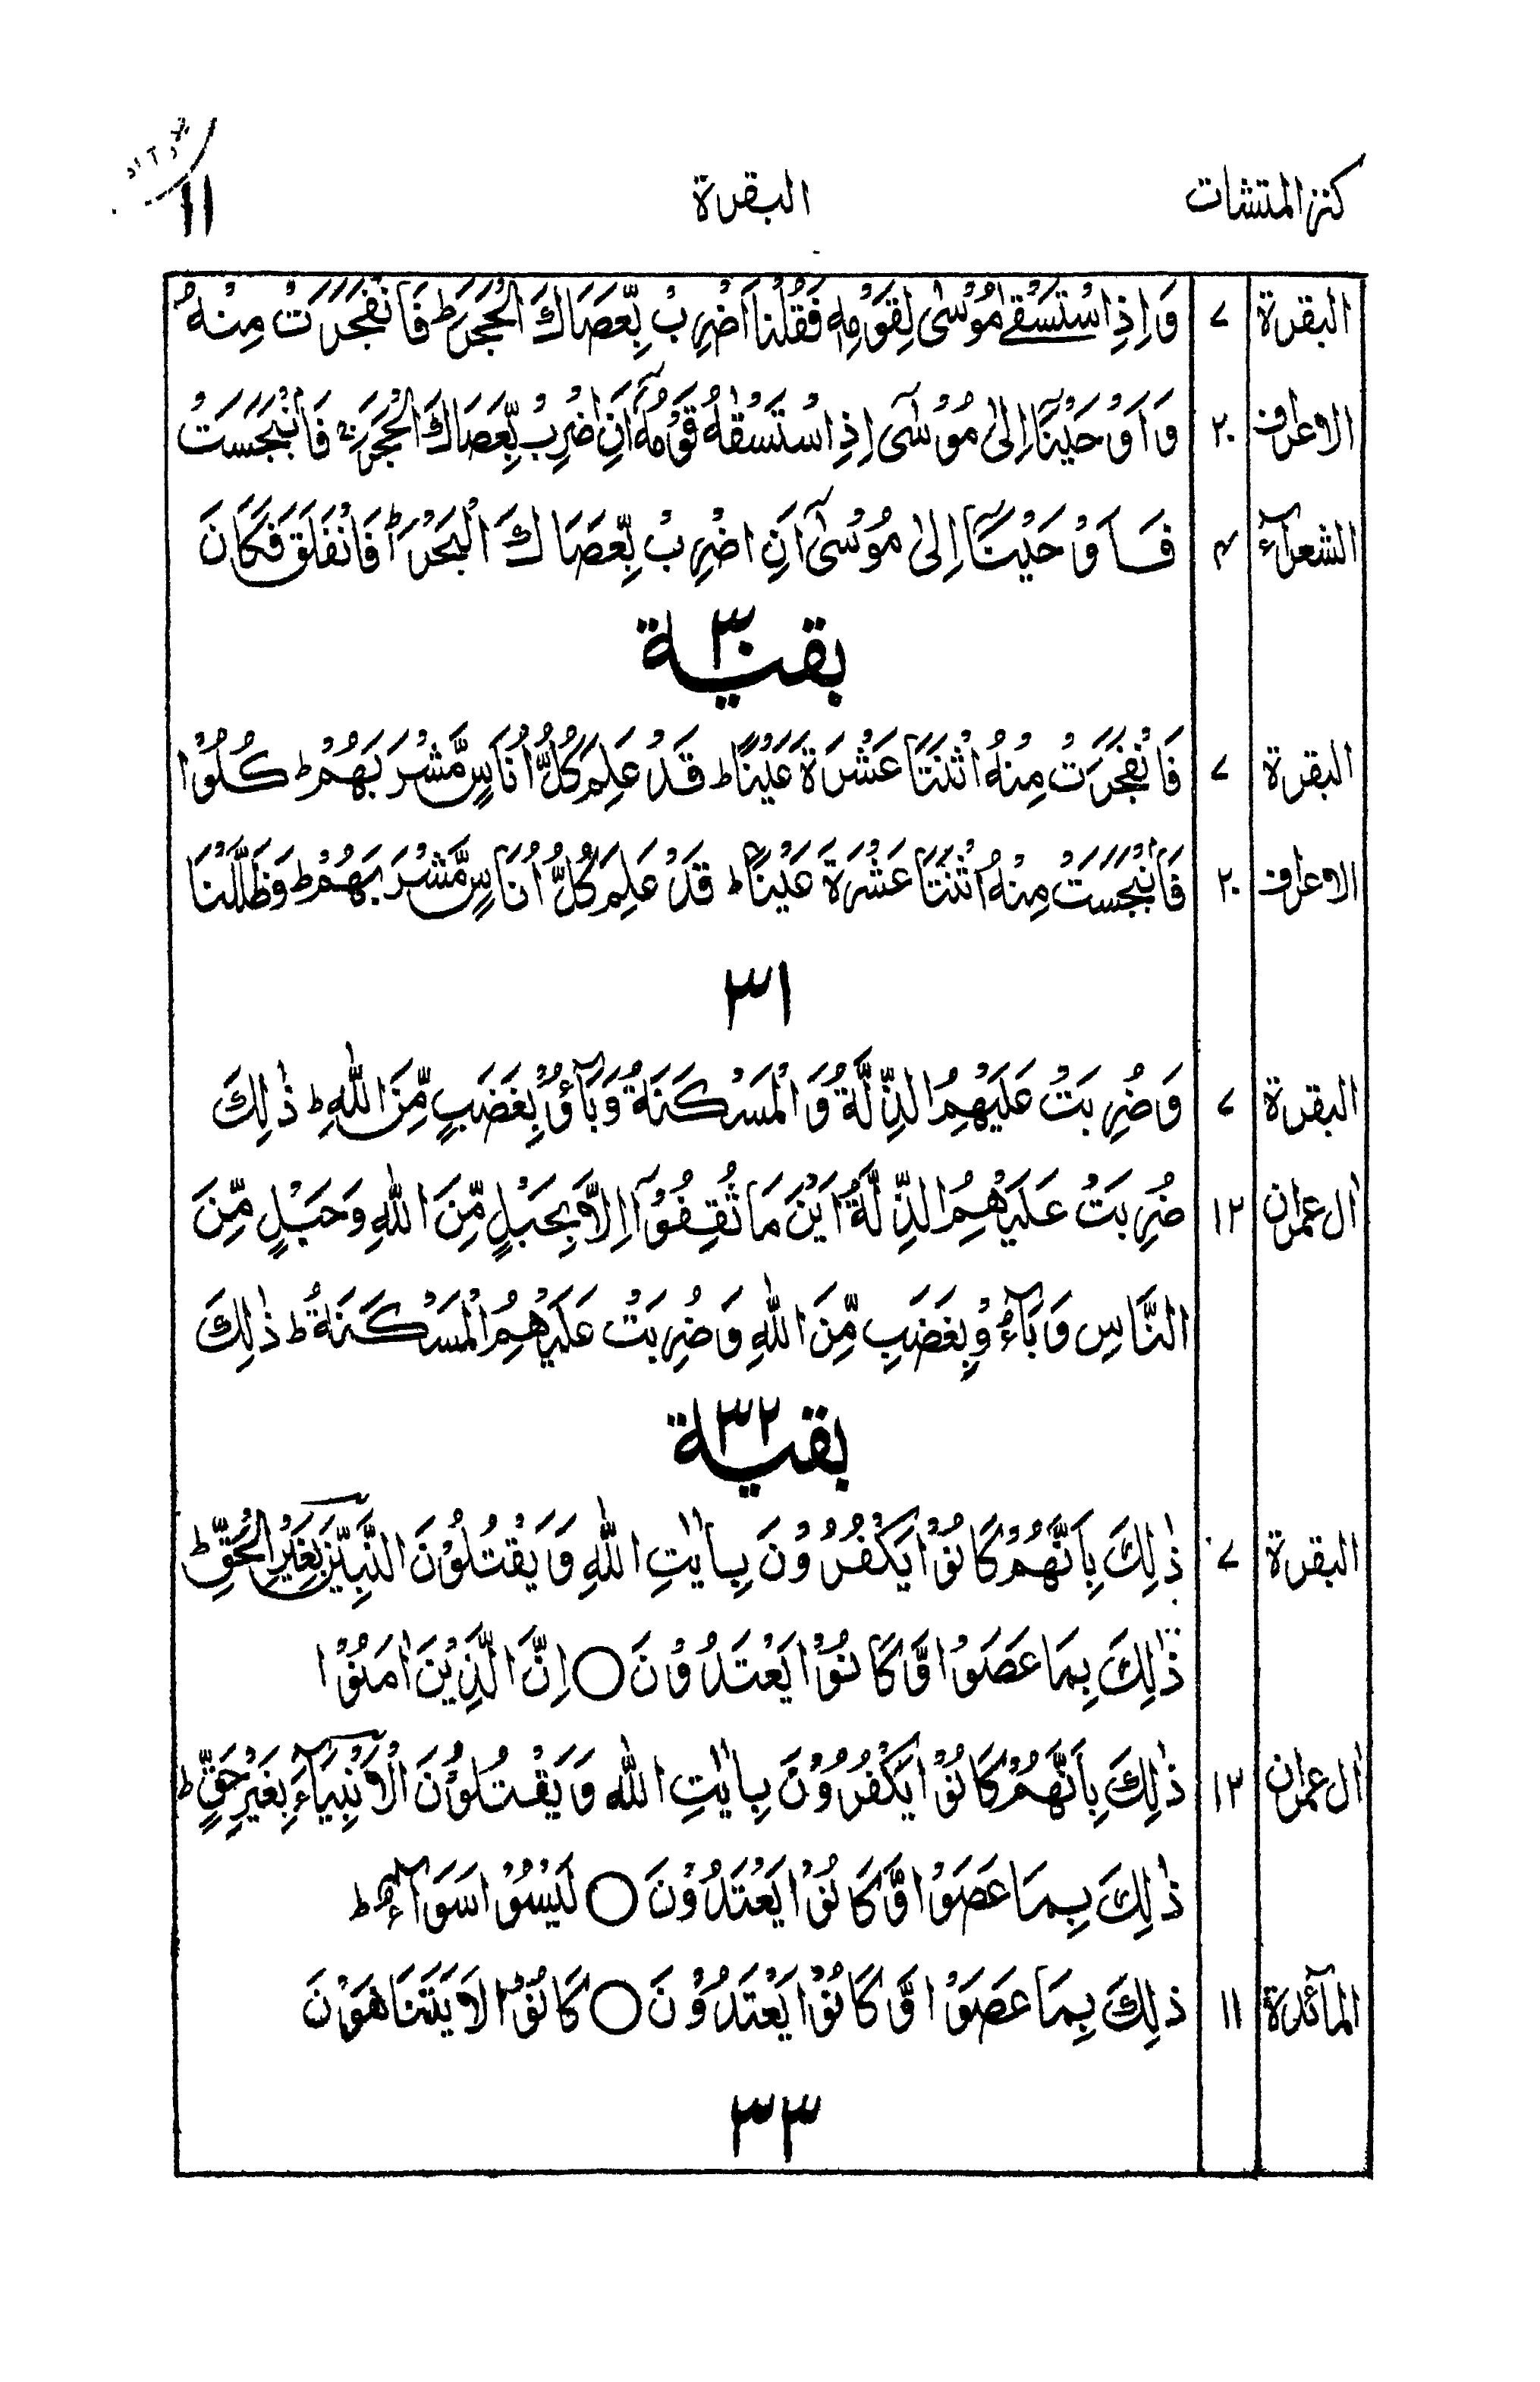 كنز المتشات البقرة ١١
البقرة ٧ وَاِذِ اسْتَسْقٰے مُوْسٰی لِقَوْمِهٖ فَقُلْنَا اضْرِبْ بِّعَصَاكَ الْحَجَرَ ط فَانْفَجَرَتْ مِنْهُ
الاعراف ٢٠ وَاَوْحَيْنَآ اِلٰی مُوْسٰٓی اِذِ اسْتَسْقٰىهُ قَوْمُهٗٓ اَنِ اضْرِبْ بِّعَصَاكَ الْحَجَرَ ج فَانْۢبَجَسَتْ
الشعرآء ٤ فَاَوْحَيْنَآ اِلٰی مُوْسٰٓی اَنِ اضْرِبْ بِّعَصَاكَ الْبَحْرَ ط فَانْفَلَقَ فَكَانَ
بقية ٣٠
البقرة ٧ فَانْفَجَرَتْ مِنْهُ اثْنَتَا عَشْرَةَ عَيْنًا ط قَدْ عَلِمَ كُلُّ اُنَاسٍ مَّشْرَبَهُمْ ط كُلُوْا
الاعراف ٢٠ فَانْۢبَجَسَتْ مِنْهُ اثْنَتَا عَشْرَةَ عَيْنًا ط قَدْ عَلِمَ كُلُّ اُنَاسٍ مَّشْرَبَهُمْ ط وَظَلَّلْنَا
٣١
البقرة ٧ وَضُرِبَتْ عَلَيْهِمُ الذِّلَّةُ وَالْمَسْكَنَةُ وَبَآؤُ بِغَضَبٍ مِّنَ اللّٰهِ ط ذٰلِكَ
اٰل عمران ١٢ ضُرِبَتْ عَلَيْهِمُ الذِّلَّةُ اَيْنَ مَا ثُقِفُوْٓا اِلَّا بِحَبْلٍ مِّنَ اللّٰهِ وَحَبْلٍ مِّنَ
النَّاسِ وَبَآءُوْ بِغَضَبٍ مِّنَ اللّٰهِ وَضُرِبَتْ عَلَيْهِمُ الْمَسْكَنَةُ ط ذٰلِكَ
بقية ٣٢
البقرة ٧ ذٰلِكَ بِاَنَّهُمْ كَانُوْا يَكْفُرُوْنَ بِاٰيٰتِ اللّٰهِ وَيَقْتُلُوْنَ النَّبِيّٖنَ بِغَيْرِ الْحَقِّ ط
ذٰلِكَ بِمَا عَصَوْا وَّكَانُوْا يَعْتَدُوْنَ ○ اِنَّ الَّذِيْنَ اٰمَنُوْا
اٰل عمران ١٢ ذٰلِكَ بِاَنَّهُمْ كَانُوْا يَكْفُرُوْنَ بِاٰيٰتِ اللّٰهِ وَيَقْتُلُوْنَ الْاَنْۢبِيَآءَ بِغَيْرِ حَقٍّ ط
ذٰلِكَ بِمَا عَصَوْا وَّكَانُوْا يَعْتَدُوْنَ ○ لَيْسُوْا سَوَآءً ط
المآئدة ١١ ذٰلِكَ بِمَا عَصَوْا وَّكَانُوْا يَعْتَدُوْنَ ○ كَانُوْا لَا يَتَنَاهَوْنَ
٣٣